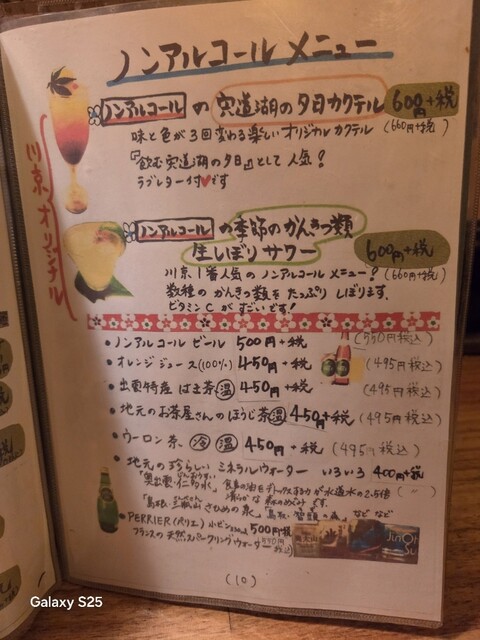 ノンアルコール メニュー
川京オリジナル
ノンアルコール の 宍道湖の夕日カクテル 600円+税
味と色が3回変わる楽しいオリジナルカクテル (660円+税)
『飲む宍道湖の夕日』として人気!
ラブレター付♥です
ノンアルコール の季節のかんきつ類
生しぼりサワー 600円+税
川京1番人気のノンアルコールメニュー! (660円+税)
数種のかんきつ類をたっぷりしぼります。
ビタミンCがすごいです!
• ノンアルコールビール 500円+税 (550円税込)
• オレンジジュース(100%) 450円+税 (495円税込)
• 出雲特産 はま茶 温 450円+税 (495円税込)
• 地元のお茶屋さんのほうじ茶 温 450円+税 (495円税込)
• ウーロン茶 冷 温 450円+税 (495円税込)
• 地元の珍らしい ミネラルウォーター いろいろ 400円+税
「奥出雲・仁多水」 が水道水の2.5倍
「島根・三瓶山 さひめの泉」 など など
• PERRIER(ペリエ) 小ビン 500円+税
フランスの天然スパークリングウォーター (550円税込)
(10)
Galaxy S25